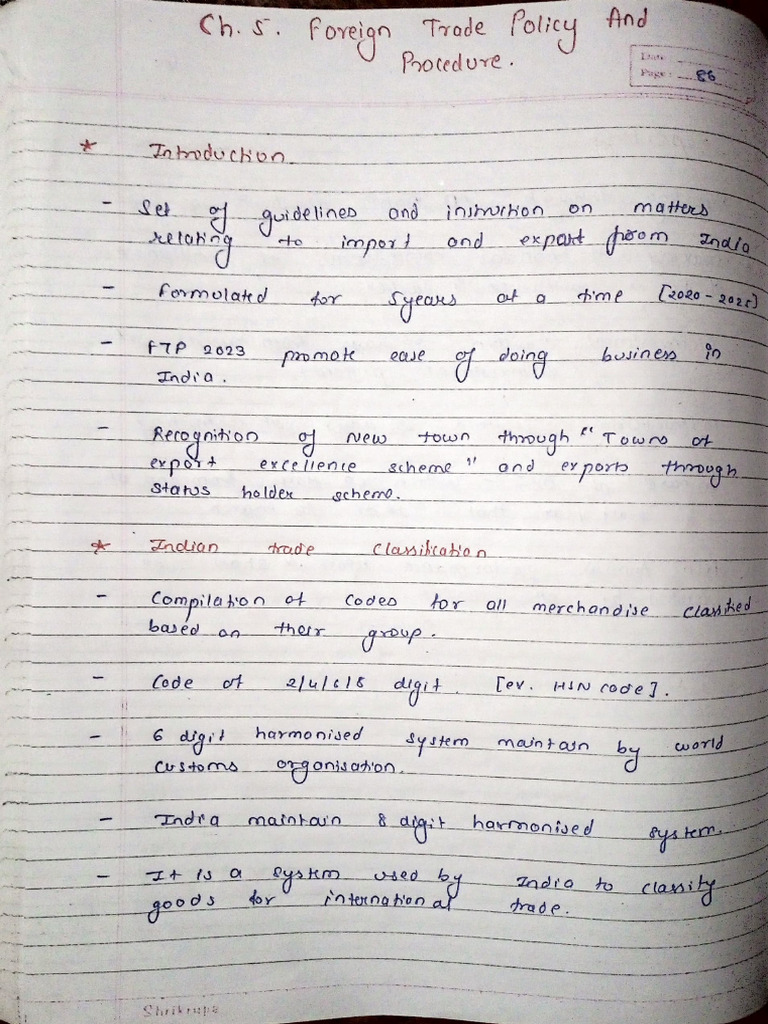 Ch. 5. Foreign Trade Policy And
Procedure.
Date
Page: 86
* Introduction
- Set of guidelines and instruction on matters
relating to import and export from India
- Formulated for 5years at a time [2020-2025]
- FTP 2023 promote ease of doing business in
India.
- Recognition of New town through "Towns of
export excellence scheme" and exports through
status holder scheme.
* Indian trade classification
- Compilation of codes for all merchandise classified
based on their group.
- Code of 2/4/6/8 digit. [ex. HSN code].
- 6 digit harmonised system maintain by world
customs organisation.
- India maintain 8 digit harmonised system.
- It is a system used by India to classify
goods for international trade.
Shrikrupa